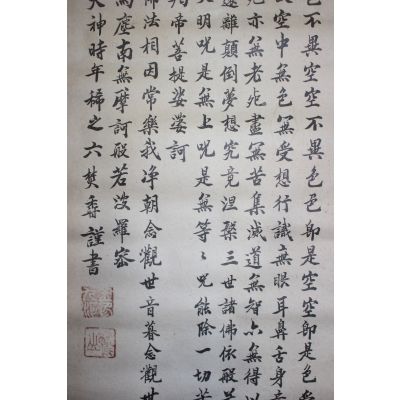 色不異空空不異色色即是空空即是色
空中無色無受想行識無眼耳鼻舌身
死亦無老死盡無苦集滅道無智亦無得以
遠離顛倒夢想究竟涅槃三世諸佛依般若
大明咒是無上咒是無等々咒能除一切苦
帝菩提娑婆訶
佛法相因常樂我淨朝念觀世音暮念觀世
塵南無摩訶般若波羅蜜
大神時年稀之六樊謹書